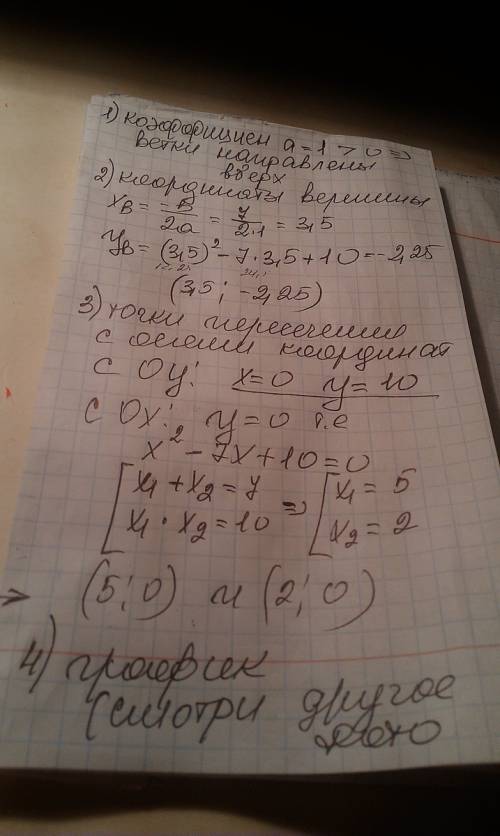 1) коэффициен a = 1 > 0 =>
ветки направлены
вверх
2) координаты вершины
xв = -в/2a = 7/2·1 = 3,5
yв = (3,5)² - 7·3,5 + 10 = -2,25
12,25
(3,5; -2,25)
3) точки пересечения
с осями координат
с Oy: x = 0 y = 10
с Ox: y = 0 т.е
x² - 7x + 10 = 0
[ x₁ + x₂ = 7 => [ x₁ = 5
x₁ · x₂ = 10 x₂ = 2
→ (5; 0) и (2; 0)
4) график
(смотри другое
фото